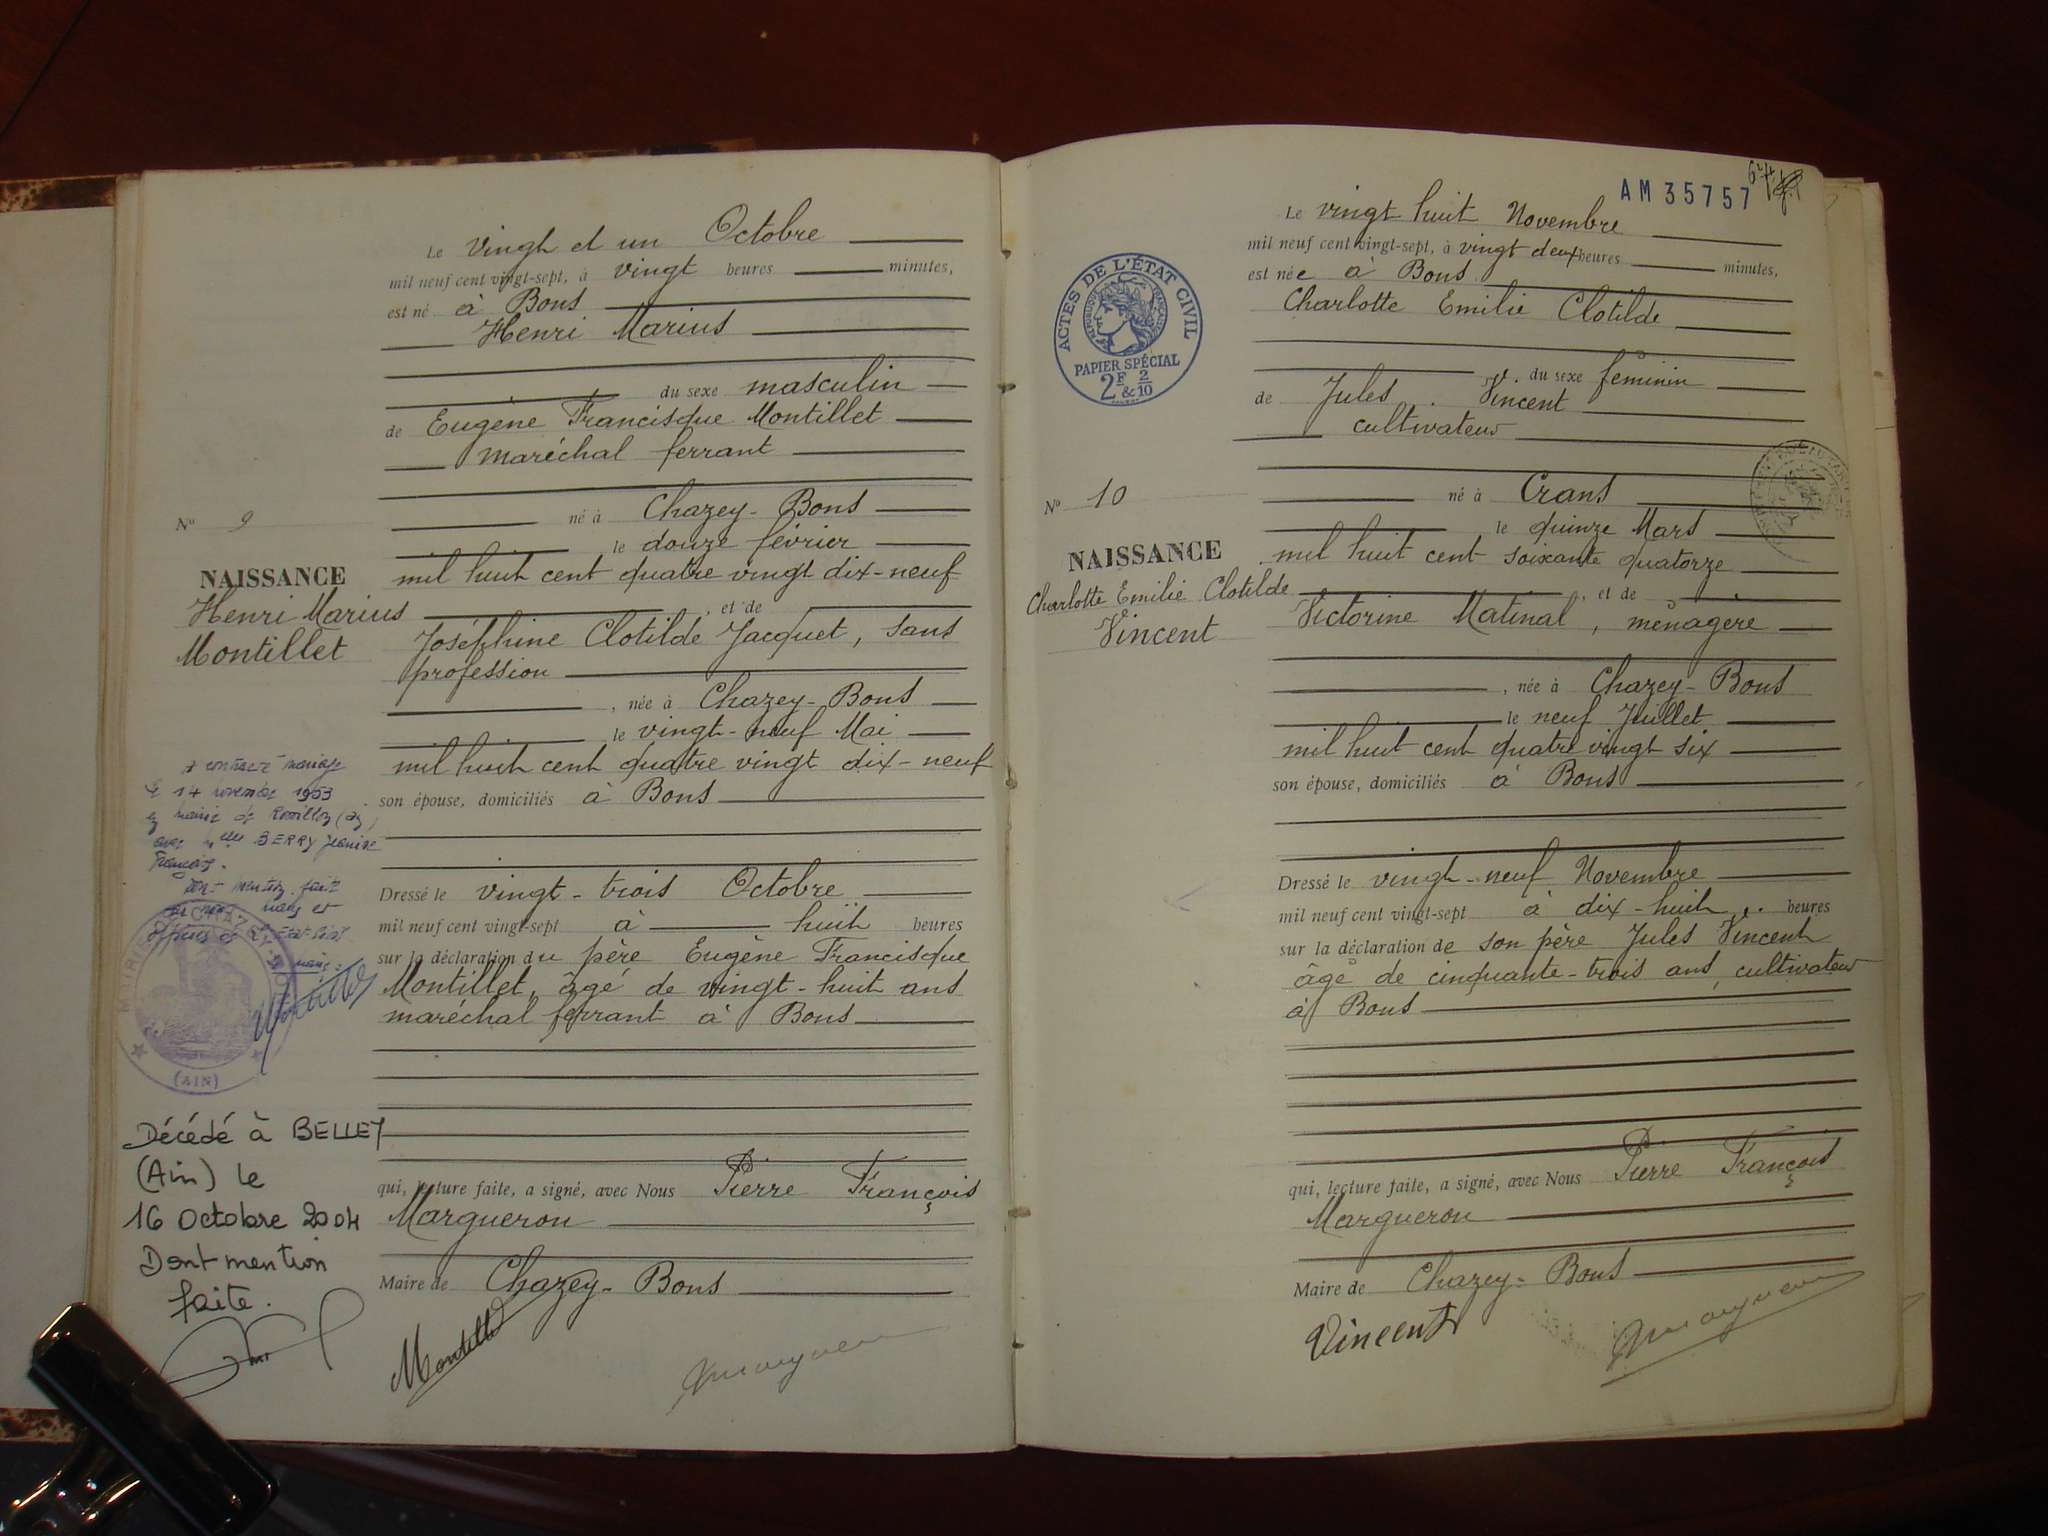 Le Vingt et un Octobre
mil neuf cent vingt-sept, à vingt heures minutes,
est né à Bons
Henri Marius
du sexe masculin
de Eugène Francisque Montillet
maréchal ferrant
né à Chazey-Bons
le douze février
mil huit cent quatre vingt dix-neuf
, et de
Joséphine Clotilde Jacquet, sans
profession
, née à Chazey-Bons
le vingt-neuf Mai
mil huit cent quatre vingt dix-neuf
son épouse, domiciliés à Bons
Dressé le vingt-trois Octobre
mil neuf cent vingt-sept à huit heures
sur la déclaration du père Eugène Francisque
Montillet, âgé de vingt-huit ans
maréchal ferrant à Bons
qui, lecture faite, a signé, avec Nous Pierre François
Margueron
Maire de Chazey-Bons
Montillet
Nº 9
NAISSANCE
Henri Marius
Montillet
A contracté mariage
le 14 novembre 1953
mairie de
avec Melle BERRY
Françoise.
Dont mention faite
par nous maire et
officier de l'Etat Civil
(AIN)
Décédé à BELLEY
(Ain) le
16 Octobre 2004
Dont mention
faite.
AM 35757
ACTES DE L'ÉTAT CIVIL
RÉPUBLIQUE FRANÇAISE
PAPIER SPÉCIAL
2F & 2/10
Le vingt huit Novembre
mil neuf cent vingt-sept, à vingt deux heures minutes,
est née à Bons
Charlotte Emilie Clotilde
du sexe féminin
de Jules Vincent
cultivateur
né à Crans
le quinze Mars
mil huit cent soixante quatorze
, et de
Victorine Matinal, ménagère
, née à Chazey-Bons
le neuf Juillet
mil huit cent quatre vingt six
son épouse, domiciliés à Bons
Dressé le vingt-neuf Novembre
mil neuf cent vingt-sept à dix-huit heures
sur la déclaration de son père Jules Vincent
âgé de cinquante-trois ans, cultivateur
à Bons
qui, lecture faite, a signé, avec Nous Pierre François
Margueron
Maire de Chazey-Bons
Vincent
Nº 10
NAISSANCE
Charlotte Emilie Clotilde
Vincent